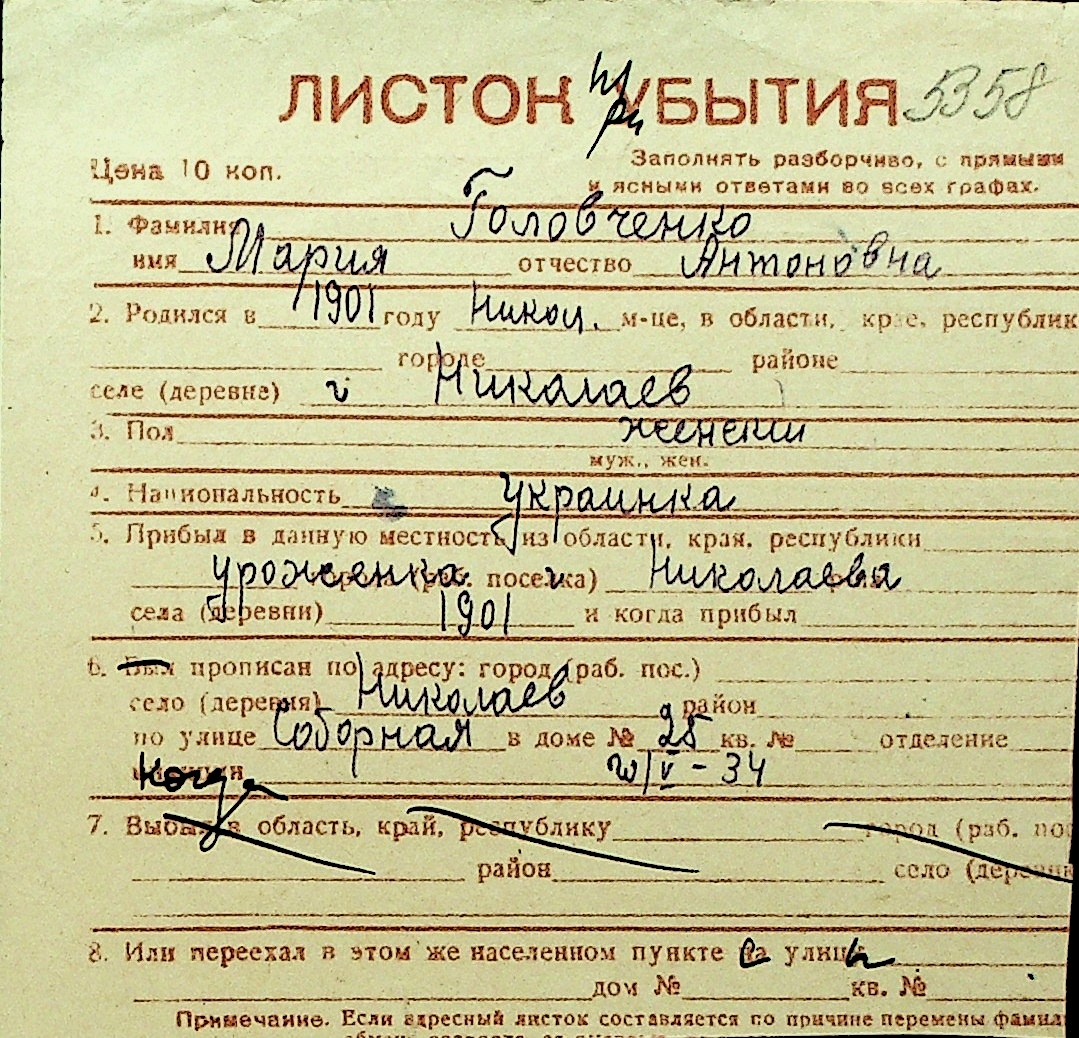 ЛИСТОК при УБЫТИЯ 5358
Цена 10 коп.
Заполнять разборчиво, с прямыми
и ясными ответами во всех графах.
1. Фамилия Головченко
имя Мария отчество Антоновна
2. Родился в 1901 году Никол. м-це, в области, крае, республик
городе районе
селе (деревне) г Николаев
3. Пол женский
муж., жен.
4. Национальность украинка
5. Прибыл в данную местность из области, края, республики
уроженка (раб. поселка) г Николаева
села (деревни) 1901 и когда прибыл
6. Был прописан по адресу: город (раб. пос.)
село (деревня) Николаев район
по улице Соборная в доме № 25 кв. № отделение
когда /V - 34
7. Выбыл в область, край, республику город (раб. пос
район село (деревня
8. Или переехал в этом же населенном пункте с улицы
дом № кв. №
Примечание. Если адресный листок составляется по причине перемены фамил